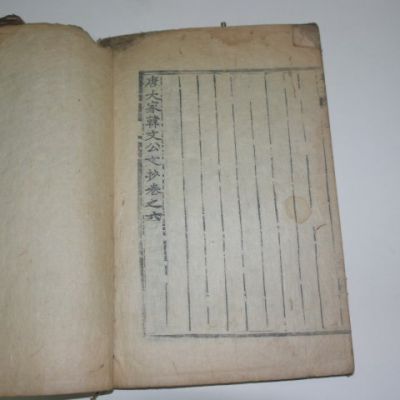 唐大家韓文公文抄卷之六